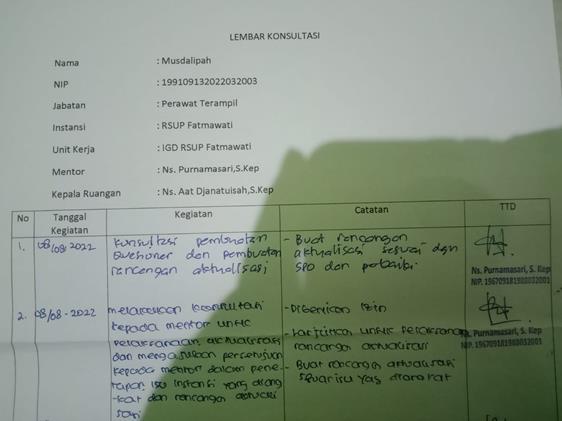 LEMBAR KONSULTASI
Nama : Musdalipah
NIP : 199109132022032003
Jabatan : Perawat Terampil
Instansi : RSUP Fatmawati
Unit Kerja : IGD RSUP Fatmawati
Mentor : Ns. Purnamasari,S.Kep
Kepala Ruangan : Ns. Aat Djanatuisah,S.Kep
No Tanggal Kegiatan Kegiatan Catatan TTD
1. 08/08-2022 Konsultasi pembuatan - Buat rancangan
dan pembuatan aktualisasi sesuai dgn
rancangan aktualisasi SPO dan perbaiki
Ns. Purnamasari, S. Kep
NIP. 196709181988032001
2. 08/08-2022 melakukan konsultasi - Diberikan izin
kepada mentor untuk
pelaksanaan aktualisasi - untuk
Purnamasari, S. Kep
NIP. 196709181988032001
dan persetujuan rancangan aktualisasi
kepada mentor dalam pene- - Buat rancangan aktualisasi
tapan isu instansi yang diang- isu yg
-kat dan rancangan